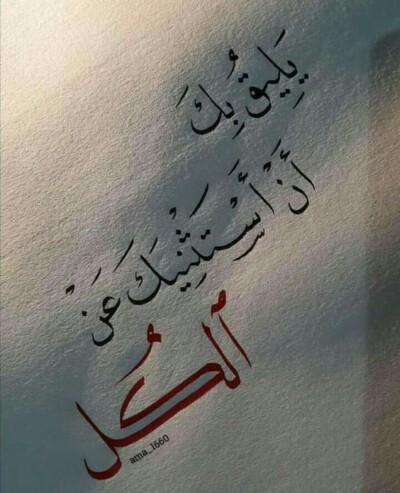 يَلِيقُ بِكَ
أَنْ أَسْتَثْنِيكَ عَنْ
الكُل
ama_1660